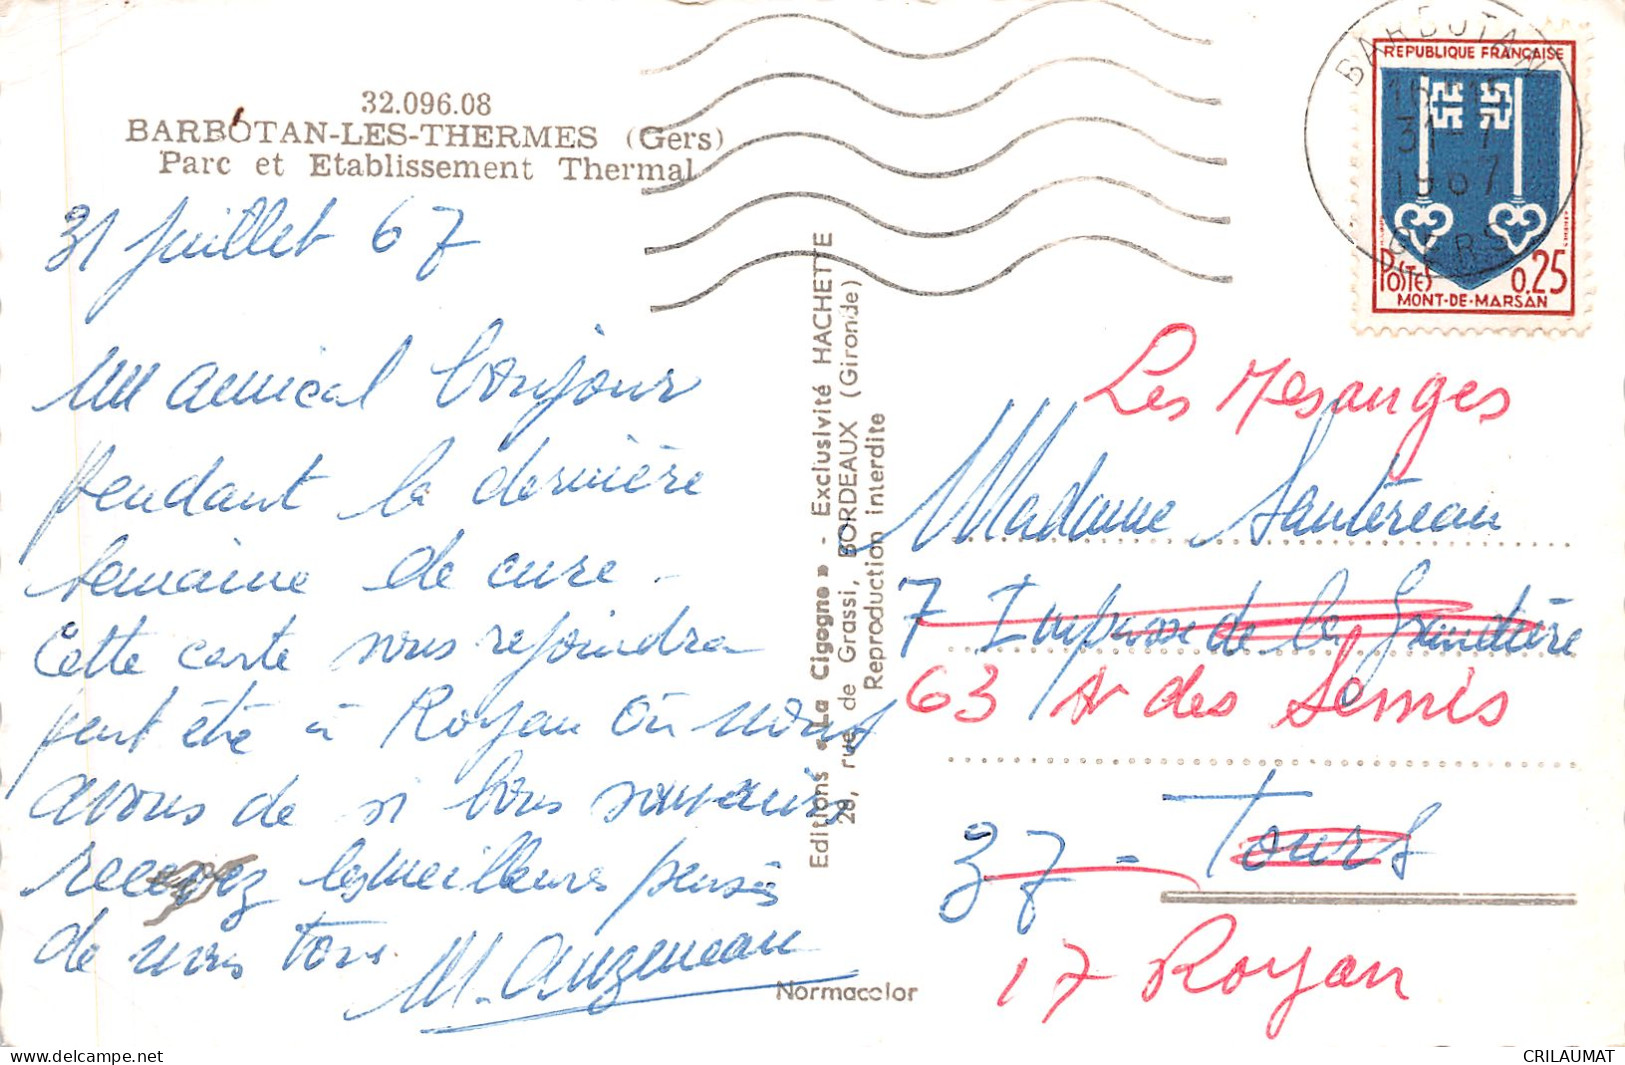 32.096.08
BARBOTAN-LES-THERMES (Gers)
Parc et Etablissement Thermal
31 juillet 67
un amical bonjour
pendant la dernière
semaine de cure -
Cette carte vous rejoindra
peut être à Royan où nous
avons de si bons souvenirs
recevez les meilleures pensées
de nous tous.
M. Auzeneau
Editions « La Cigogne » - Exclusivité HACHETTE
28, rue de Grassi, BORDEAUX (Gironde)
Reproduction interdite
Normacolor
BARBOTAN
31-7
1967
GERS
REPUBLIQUE FRANÇAISE
POSTES 0,25
MONT-DE-MARSAN
Les Mesanges
Madame Sautereau
7 Impasse de la Grandière
63 Av des Semis
37 - Tours
17 Royan
www.delcampe.net
CRILAUMAT